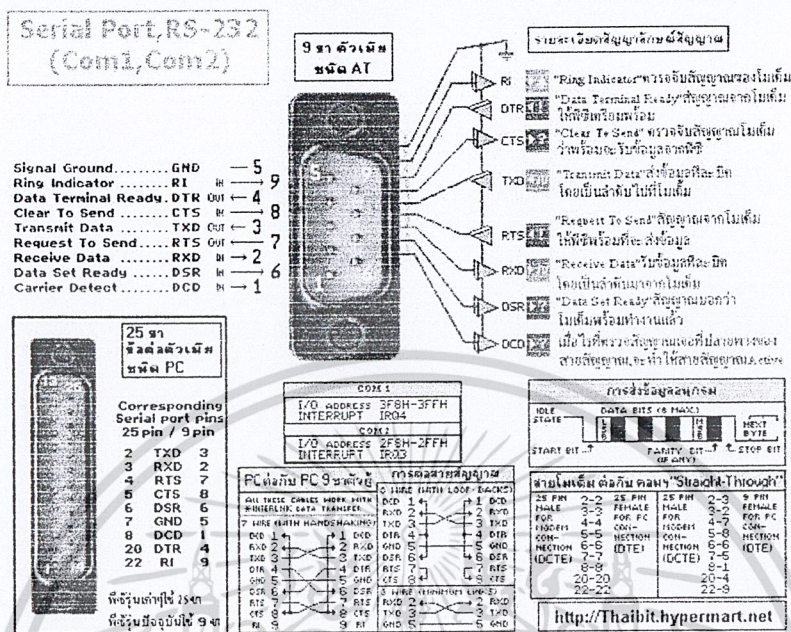 Serial Port,RS-232
(Com1,Com2)
9 ขา ตัวเมีย
ชนิด AT
รายละเอียดสัญญาลักษณ์สัญญาณ
RI "Ring Indicator"ตรวจจับสัญญาณของโมเด็ม
DTR "Data Terminal Ready"สัญญาณจากโมเด็ม
ให้พีซีเตรียมพร้อม
CTS "Clear To Send" ตรวจจับสัญญาณโมเด็ม
ว่าพร้อมจะรับข้อมูลจากพีซี
TXD "Transmit Data"ส่งข้อมูลทีละบิต
โดยเป็นลำดับไปที่โมเด็ม
RTS "Request To Send"สัญญาณจากโมเด็ม
ให้พีซีพร้อมที่จะ ส่งข้อมูล
RXD "Receive Data"รับข้อมูลทีละบิต
โดยเป็นลำดับมาจากโมเด็ม
DSR "Data Set Ready"สัญญาณบอกว่า
โมเด็มพร้อมทำงานแล้ว
DCD เมื่อไรที่ตรวจสัญญาณเจอที่ปลายทางของ
สายสัญญาณ,จะทำให้สายสัญญาณActive
Signal Ground.........GND 5
Ring Indicator ........RI IN 9
Data Terminal Ready.DTR OUT 4
Clear To Send ........CTS IN 8
Transmit Data ........TXD OUT 3
Request To Send......RTS OUT 7
Receive Data .........RXD IN 2
Data Set Ready ......DSR IN 6
Carrier Detect........DCD IN 1
5
1
25 ขา
ข้อต่อตัวเมีย
ชนิด PC
Corresponding
Serial port pins
25 pin / 9 pin
2 TXD 3
3 RXD 2
4 RTS 7
5 CTS 8
6 DSR 6
7 GND 5
8 DCD 1
20 DTR 4
22 RI 9
พีซีรุ่นเก่าๆใช้ 25ขา
พีซีรุ่นปัจจุบันใช้ 9 ขา
COM 1
I/O ADDRESS 3F8H-3FFH
INTERRUPT IRQ4
COM 2
I/O ADDRESS 2F8H-2FFH
INTERRUPT IRQ3
PCต่อกับ PC 9 ขาตัวผู้
การต่อสายสัญญาณ
ALL THESE CABLES WORK WITH
*INTERLNK DATA TRANSFER
7 WIRE (WITH HANDSHAKING)
DCD 1 1 DCD
RXD 2 2 RXD
TXD 3 3 TXD
DTR 4 4 DTR
GND 5 5 GND
DSR 6 6 DSR
RTS 7 7 RTS
CTS 8 8 CTS
RI 9 9 RI
3 WIRE (WITH LOOP-BACKS)
DCD 1 1 DCD
RXD 2 2 RXD
TXD 3 3 TXD
DTR 4 4 DTR
GND 5 5 GND
DSR 6 6 DSR
RTS 7 7 RTS
CTS 8 8 CTS
3 WIRE (MINIMUM LINES)
RXD 2 2 RXD
TXD 3 3 TXD
GND 5 5 GND
การส่งข้อมูลอนุกรม
IDLE
STATE
DATA BITS (8 MAX.)
NEXT
BYTE
START BIT
PARITY BIT
(IF ANY)
STOP BIT
สายโมเด็ม ต่อกับ คอมฯ"Straight-Through"
25 PIN
MALE
FOR
MODEM
CON-
NECTION
(DCTE)
2-2
3-3
4-4
5-5
6-6
7-7
8-8
20-20
22-22
25 PIN
FEMALE
FOR PC
CON-
NECTION
(DTE)
25 PIN
MALE
FOR
MODEM
CON-
NECTION
(DCTE)
2-3
3-2
4-7
5-8
6-6
7-5
8-1
20-4
22-9
9 PIN
FEMALE
FOR PC
CON-
NECTION
(DTE)
http://Thaibit.hypermart.net